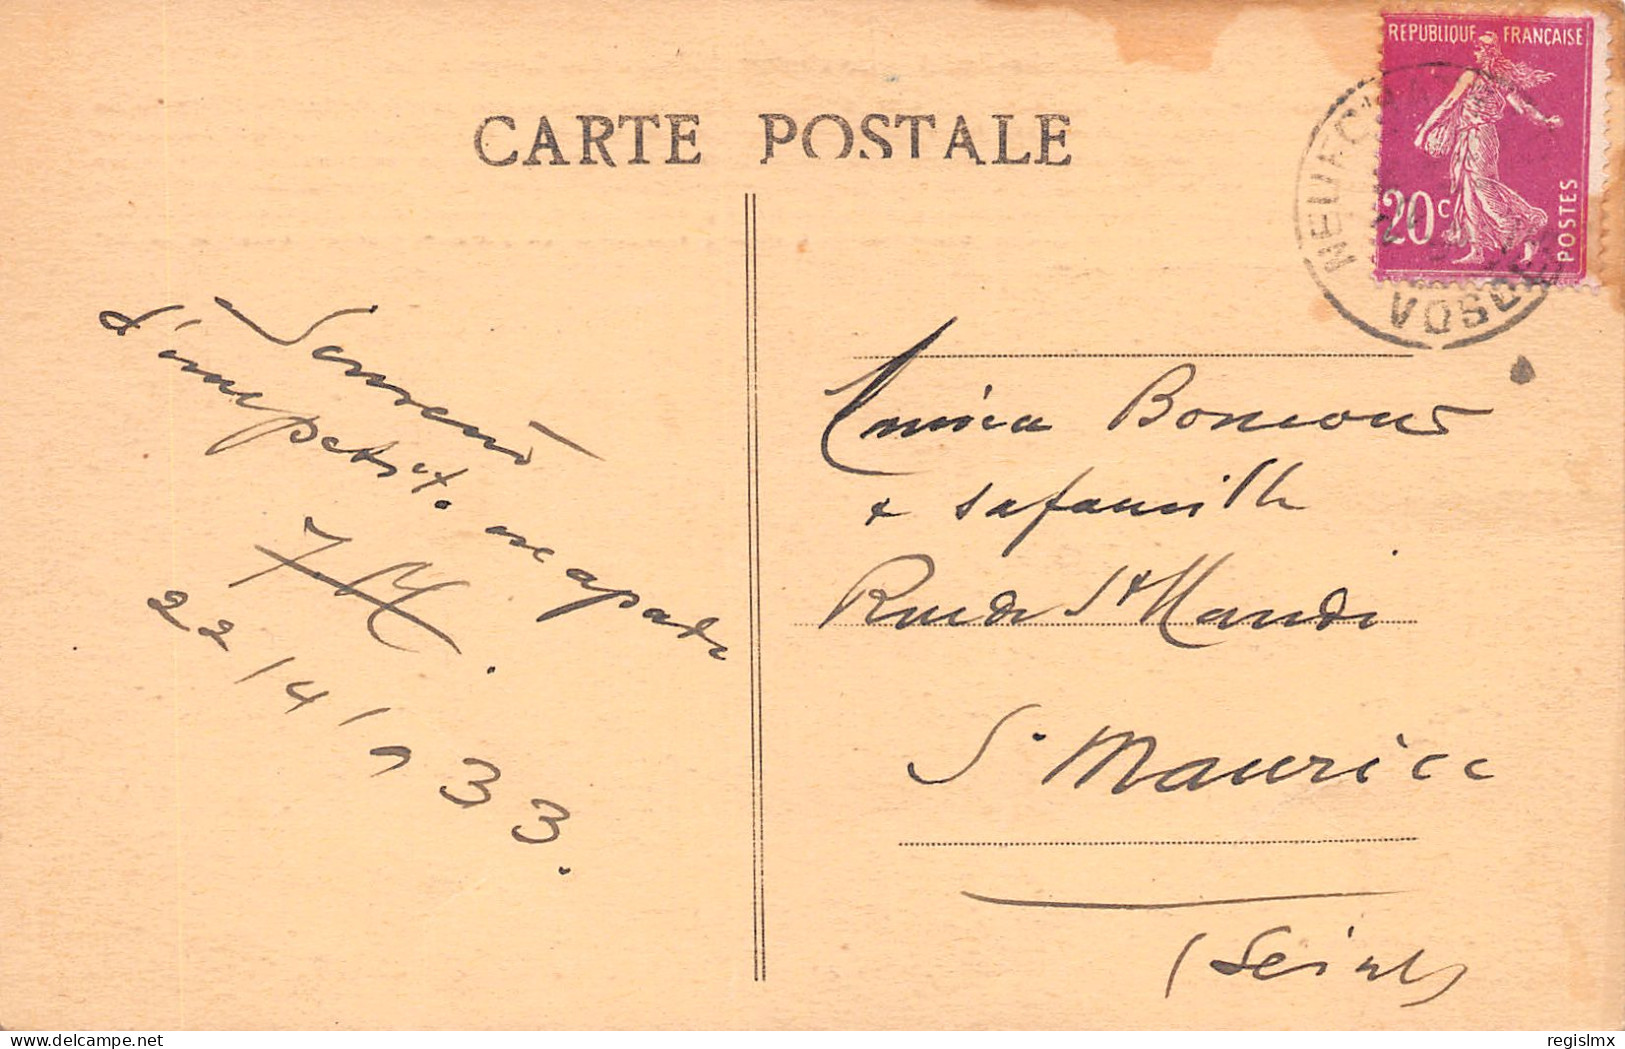 REPUBLIQUE FRANÇAISE
20c
POSTES
NEUFCH
VOSGES
CARTE POSTALE
Souvenir
d'une petite escapade
22/4/1933.
Boncour
& sa famille
Rue de St Mandé
St Maurice
(Seine)
Delcampe.net
regislmx